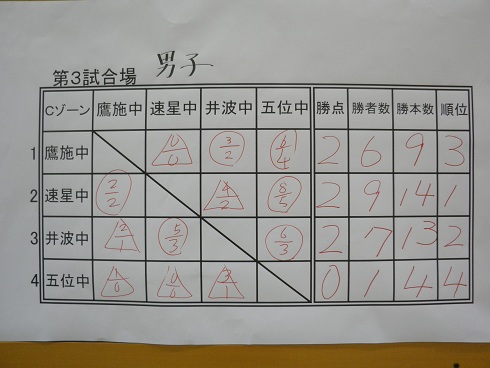 第3試合場 男子
Cゾーン 鷹施中 速星中 井波中 五位中 勝点 勝者数 勝本数 順位
1 鷹施中 0/0 3/2 6/4 2 6 9 3
2 速星中 2/2 4/2 8/5 2 9 14 1
3 井波中 2/1 5/3 6/3 2 7 13 2
4 五位中 1/0 3/1 0 1 4 4